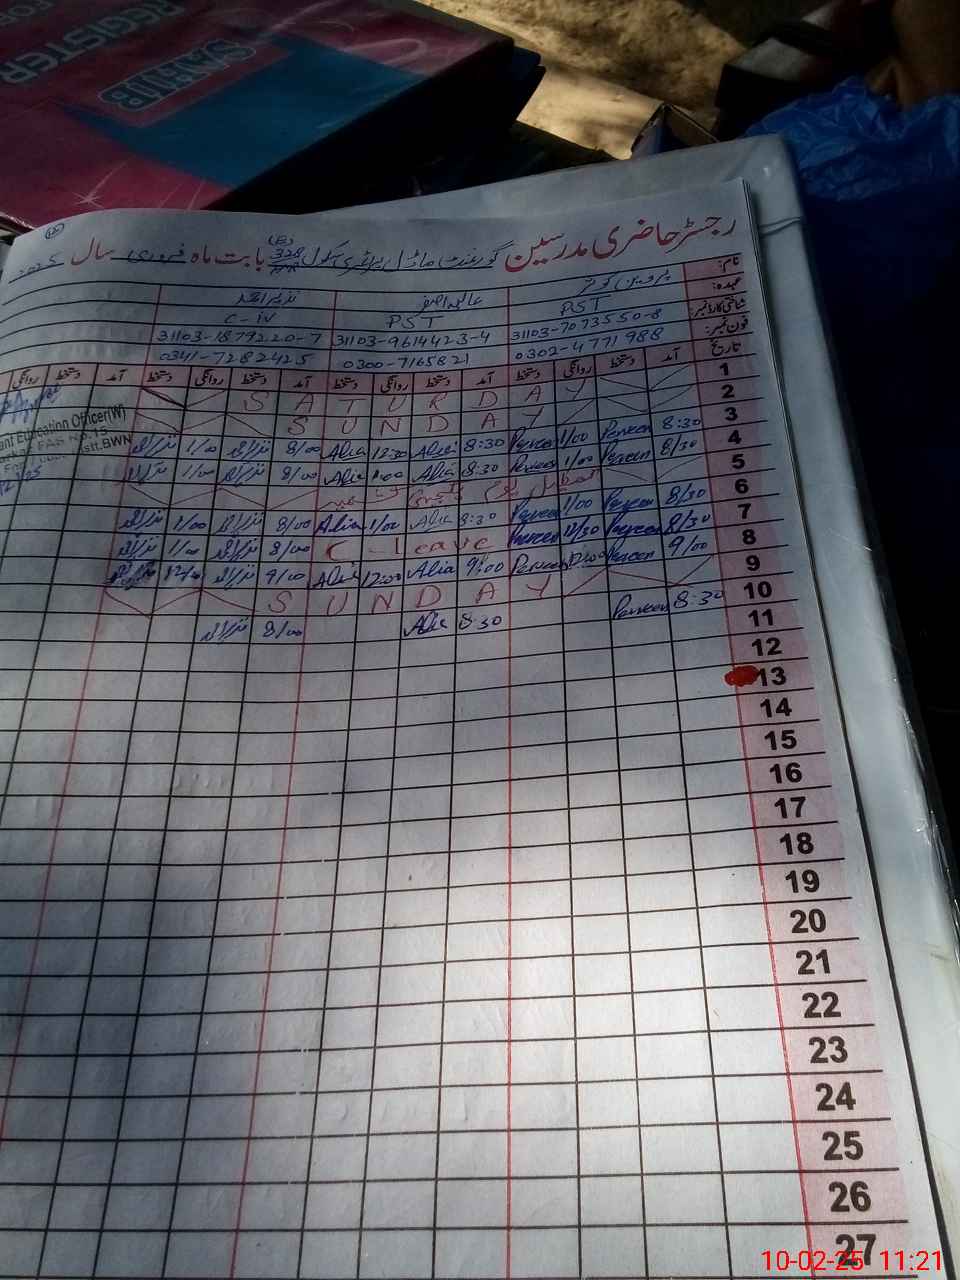 SAHIB
REGISTER
FOR
رجسٹر حاضری مدرسین گورنمنٹ ماڈل پرائمری سکول 328 بابت ماہ فروری سال 2025
نام: پروین کوثر عالیہ اصغر نذیر احمد
عہدہ: PST PST C-IV
شناختی کارڈ نمبر: 31103-7073550-8 31103-9614423-4 31103-1879220-7
فون نمبر: 0302-4771988 0300-7165821 0341-7282425
تاریخ آمد دستخط روانگی دستخط آمد دستخط روانگی دستخط آمد دستخط روانگی دستخط آمد دستخط روانگی
1 SATURDAY
2 SUNDAY
3 8:30 Parveen 1/00 Parveen 8:30 Alia 12:30 Alia 8/00 1/00
4 8/30 Parveen 1/00 Parveen 8:30 Alia Alia 8/00 1/00
5 تعطیل یوم کشمیر
6 8/30 Parveen 1/00 Parveen 8:30 Alia 1/00 Alia 8/00 1/00
7 8/30 Parveen Parveen C-leave 8/00 1/00
8 9/00 Parveen Parveen 9:00 Alia 12:00 Alia 9/00
9 SUNDAY
10 8:30 Parveen 8:30 Alia 8/00
11
12
13
14
15
16
17
18
19
20
21
22
23
24
25
26
27
Education Officer(W)
BWN
10-02-25 11:21